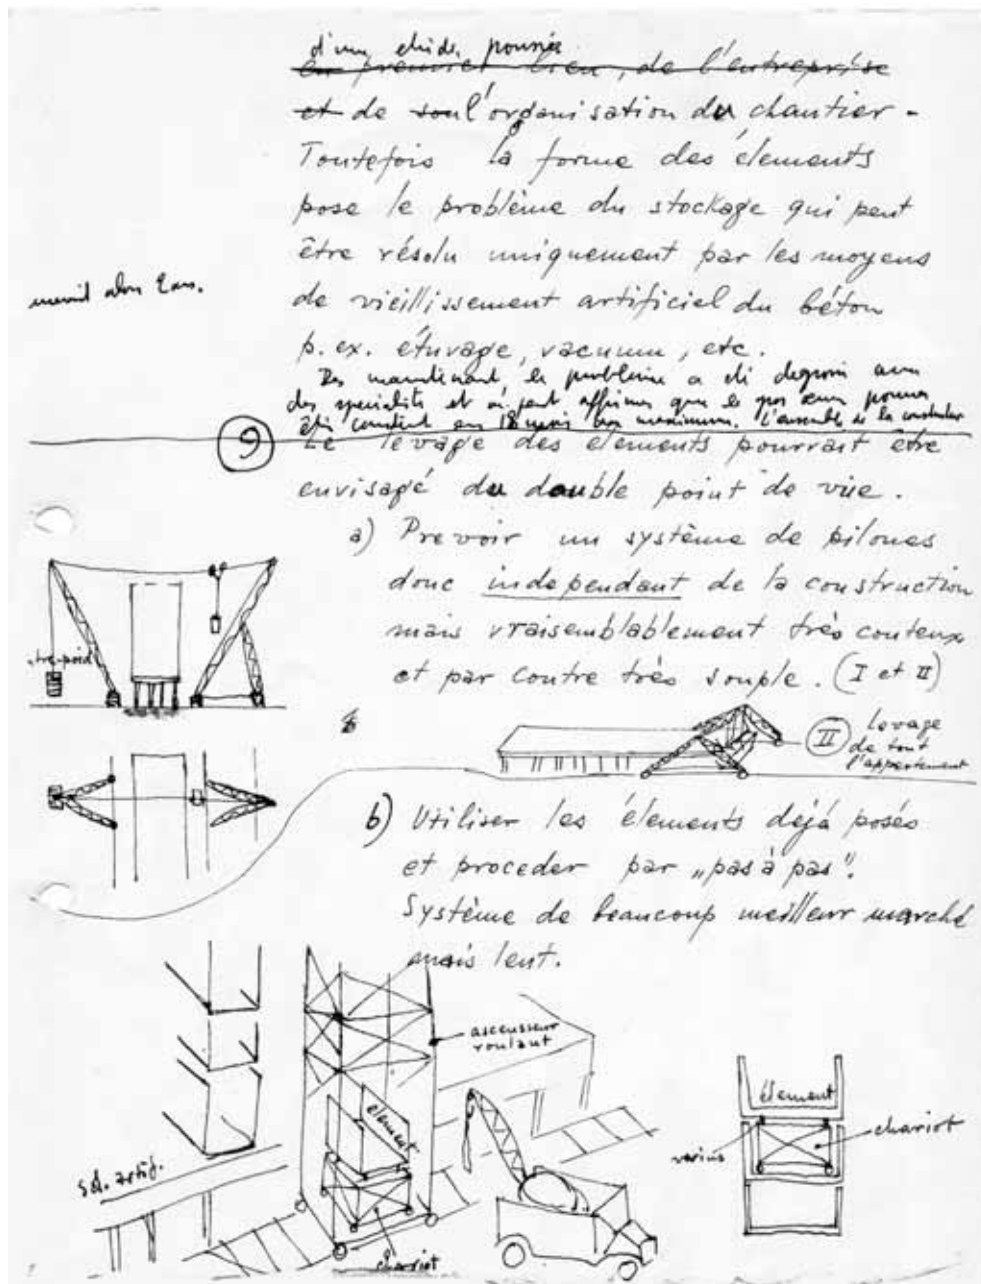 d'une étude poussée
en premier lieu, de l'entreprise
et de son l'organisation du chantier -
Toutefois la forme des élements
pose le problème du stockage qui peut
être résolu uniquement par les moyens
de vieillissement artificiel du béton
p. ex. étuvage, vacuum, etc.
Des maintenant, le problème a été
des specialists et affirmer que le gros
18 mois maximum. L'ensemble de la
9
Le levage des elements pourrait être
envisagé du double point de vue.
a) Prevoir un système de pilones
donc independant de la construction
mais vraisemblablement très couteux
et par contre très souple. (I et II)
tre-poid
II levage
de tout
l'appartement
b) Utiliser les élements déjà posés
et proceder par „pas à pas".
Système de beaucoup meilleur marché
mais lent.
ascenseur
roulant
élement
sol. artif.
chariot
élement
chariot
verins